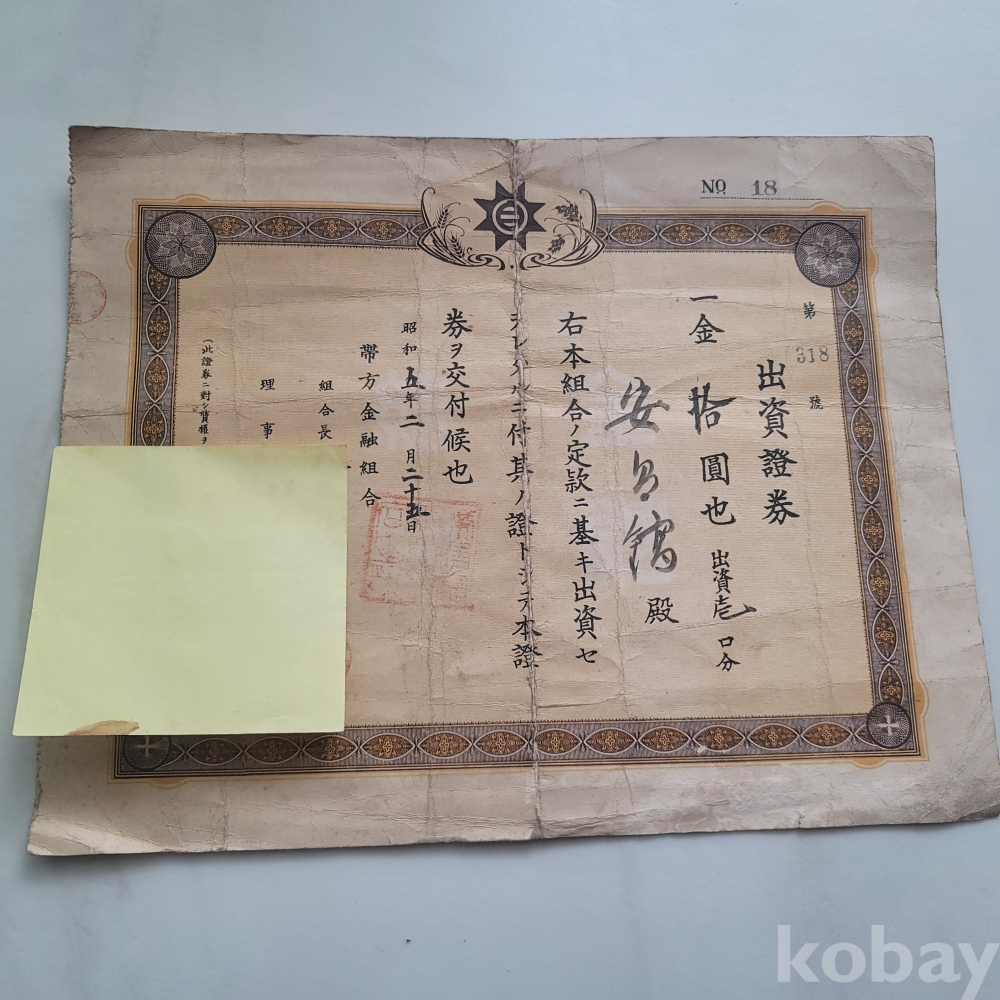 NO 18
第 318 號
出資證券
一金拾圓也 出資壱口分
安 殿
右本組合ノ定款ニ基キ出資セ
ラレタルニ付其ノ證トシテ本證
券ヲ交付候也
昭和五年二月二十五日
帶方金融組合
組合長
理事
(此證券ニ對シ質權ヲ
kobay